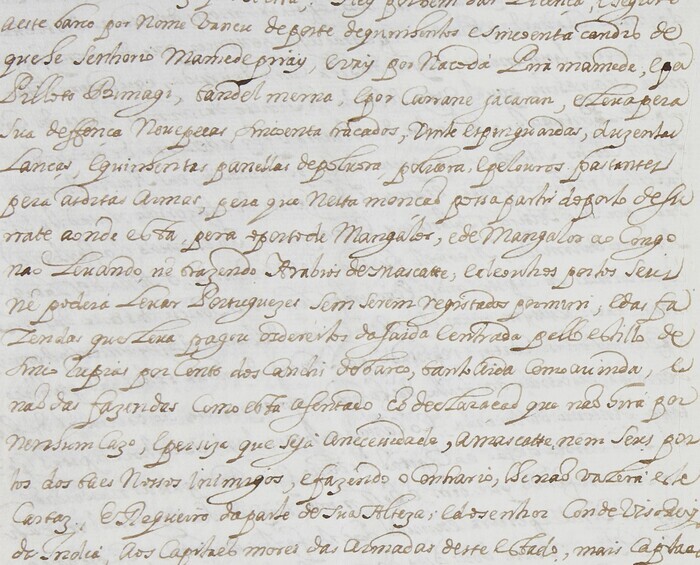 a este barco por Nome Vancu de porte de quinhentos e sincoenta candis de
que he Senhorio Mamede , e vay por Nacoda Pir mamede, e por
Pilloto Ramagi, tandel mema, e por Carrane jacaran, e leva pera
sua deffença Nove peças, sincoenta traçados, vinte espinguardas, duzentas
Lanças, e quinhentas panellas de polvora, polvora, e pelouros bastantes
pera as ditas armas, pera que nesta monçaõ possa partir do porto de Su
rrate aonde está, pera o porto de Mangalor, e de Mangalor ao Congo
naõ Levando, nē trazendo Arabios de Mascatte, e de outros portos seus
nē podera Levar Portuguezes sem serem registados por mim, e das fa
zendas que Leva pagou os dereitos da saida e entrada pello estillo de
sinco rupias por cento dos Candis do barco, tanto à ida como à vinda, e
naõ das fazendas como está asentado, cõ declaraçaõ que naõ hirá por
nenhum cazo, e persiza que seja a necessidade, a Mascatte, nem seus por
tos dos taes Nossos inimigos, e fazendo o Contrario, lhe naõ valerá este
Cartaz, e Requeiro da parte de Sua Alteza, e do senhor Conde Visorey
da India, aos Capitaẽs mores das Armadas deste estado, mais Capitaẽs